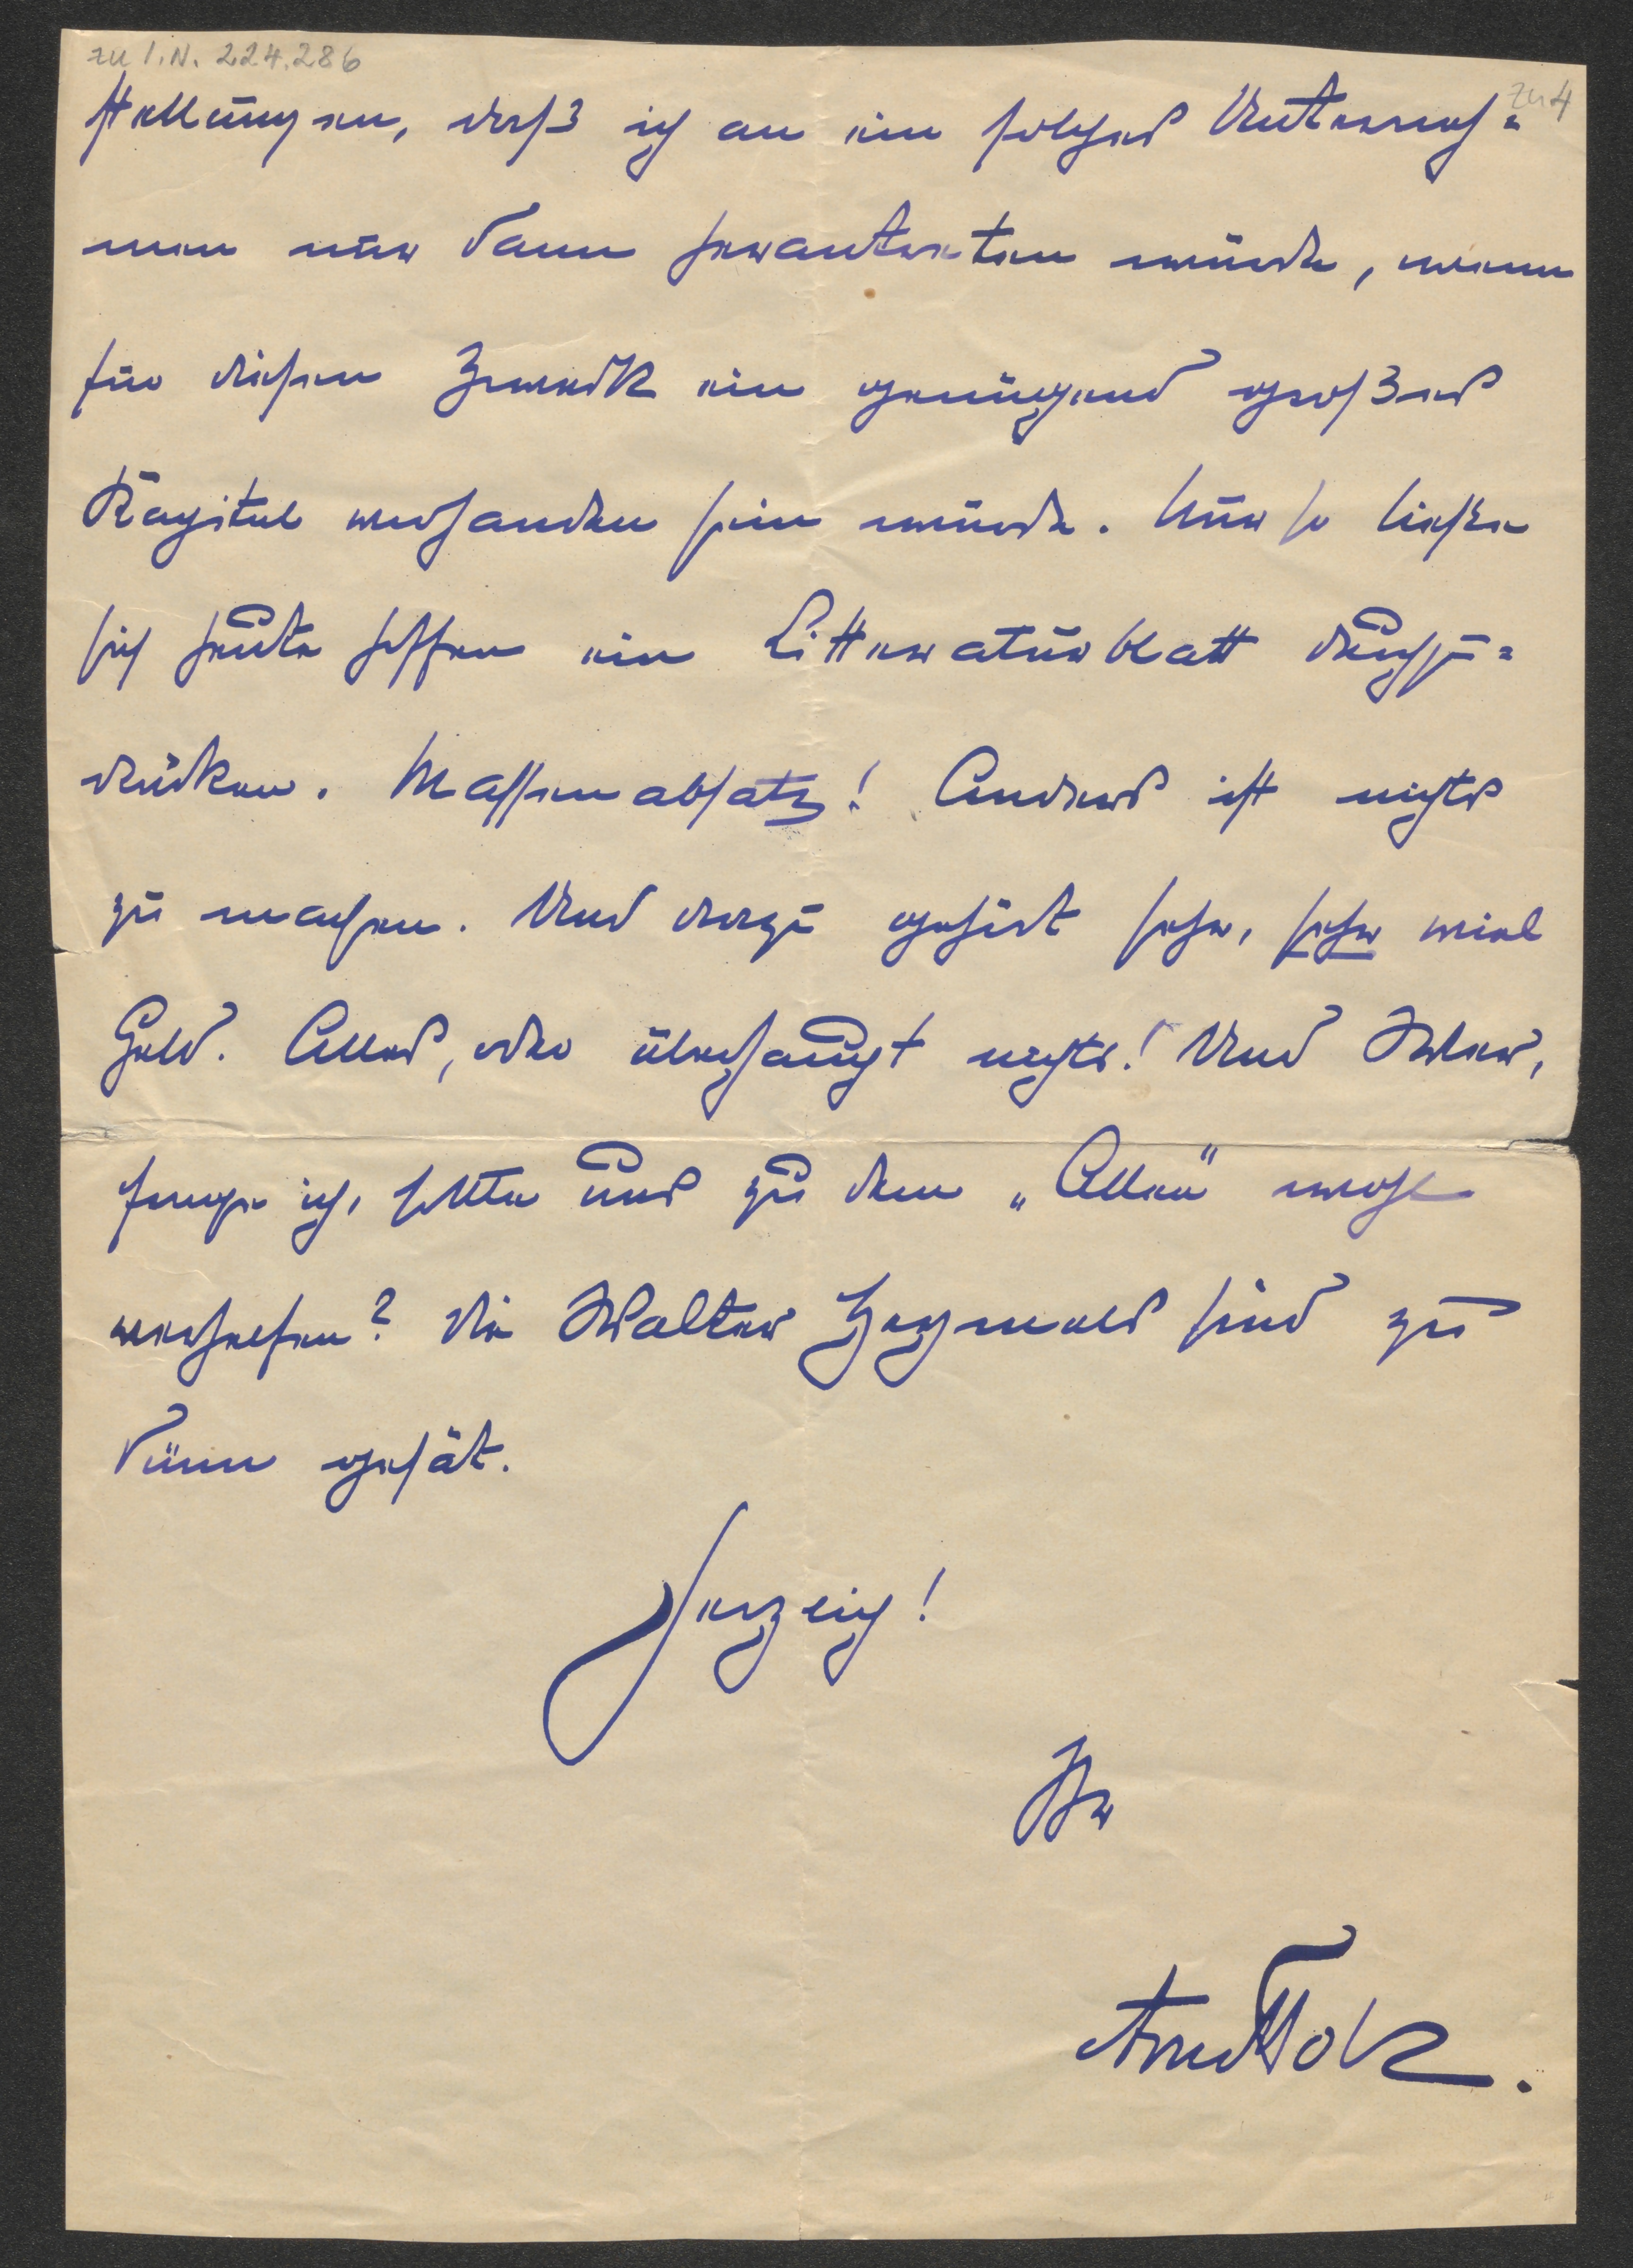 zu I.N. 224.286
zu 4
stellungen, daß ich an ein solches Unterneh=
men nur dann herantreten würde, wenn
für diesen Zweck ein genügend großes
Kapital vorhanden sein würde. Nur so ließe
sich heute hoffen ein Litteraturblatt durchzu=
drücken. Massenabsatz! Anders ist nichts
zu machen. Und dazu gehört sehr, sehr viel
Geld. Alles, oder überhaupt nichts! Und Wer,
frage ich, sollte uns zu dem „Allen" wohl
verhelfen? Die Walter Heymels sind zu
dünn gesät.
Herzlich!
Ihr
Arno Holz.